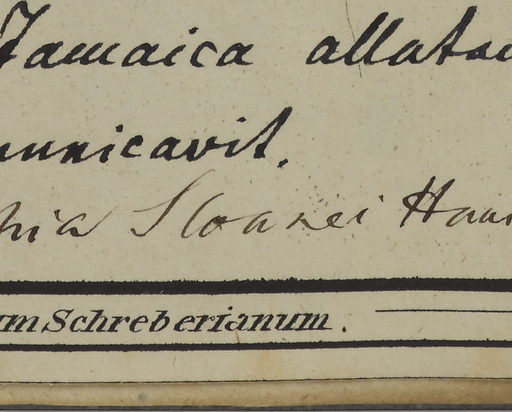 Jamaica allata
unicavit.
hia Sloanei Haw
um Schreberianum.